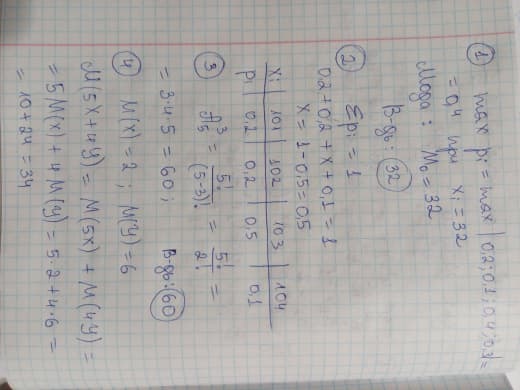 ① max pi = max | 0,2; 0,1; 0,4; 0,3| =
= 0,4 при xi = 32
Мода: M₀ = 32
В-дь: 32
② Σpi = 1
0,2+0,2+x+0,1 = 1
x = 1-0,5 = 0,5
xi | 101 | 102 | 103 | 104
pi | 0,2 | 0,2 | 0,5 | 0,1
③ A₅³ = 5!/(5-3)! = 5!/2! =
= 3·4·5 = 60; В-дь: 60
④ M(x) = 2; M(y) = 6
M(5x+4y) = M(5x) + M(4y) =
= 5M(x) + 4M(y) = 5·2+4·6 =
= 10+24 = 34